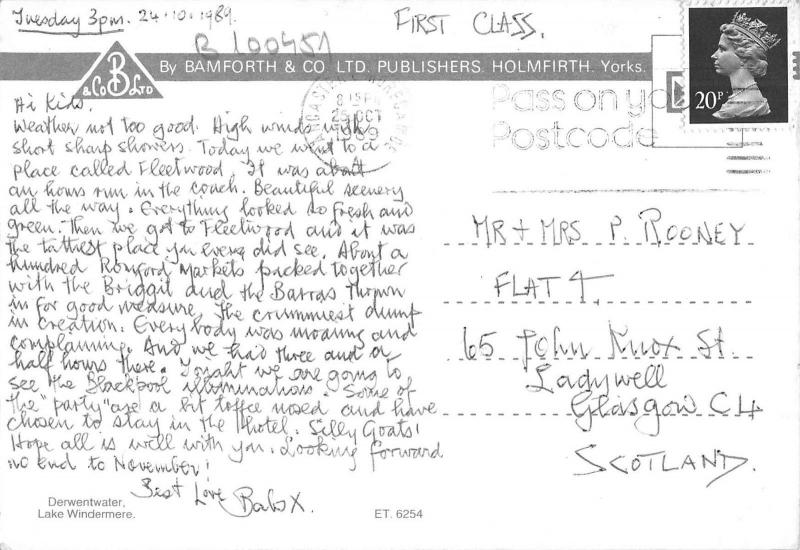 Tuesday 3pm. 24.10.1989.
FIRST CLASS.
B 100451
B
& Co LTD
By BAMFORTH & CO LTD. PUBLISHERS. HOLMFIRTH. Yorks.
8 15PM
25 OCT
1989
Pass on yo
Postcode
20P
Hi Kids.
Weather not too good. High winds with
short sharp showers. Today we went to a
place called Fleetwood. It was about
an hours run in the coach. Beautiful scenery
all the way. Everything looked so fresh and
green. Then we got to Fleetwood and it was
the tattiest place you every did see. About a
hundred Romford Markets packed together
with the Briggit and the Barras thrown
in for good measure. The crummiest dump
in creation. Everybody was moaning and
complaining. And we had three and a
half hours there. Tonight we are going to
see the Blackpool illuminations. Some of
the "party" are a bit toffee nosed and have
chosen to stay in the hotel. Silly Goats!
Hope all is well with you. Looking forward
no end to November!
Best Love
Babs X.
MR + MRS P. ROONEY
FLAT 4,
65 John Knox St.
Ladywell
Glasgow C4
SCOTLAND.
Derwentwater,
Lake Windermere.
ET. 6254